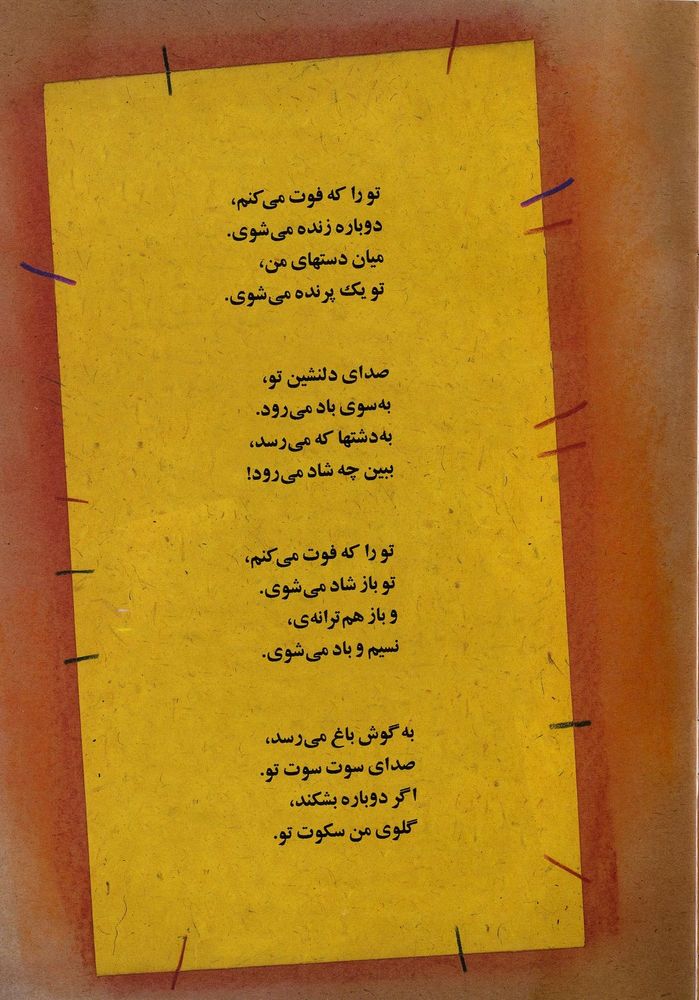 تو را که فوت می‌کنم،
دوباره زنده می‌شوی.
میان دستهای من،
تو یک پرنده می‌شوی.
صدای دلنشین تو،
به‌سوی باد می‌رود.
به‌دشتها که می‌رسد،
ببین چه شاد می‌رود!
تو را که فوت می‌کنم،
تو باز شاد می‌شوی.
و باز هم ترانه‌ی،
نسیم و باد می‌شوی.
به گوش باغ می‌رسد،
صدای سوت سوت تو.
اگر دوباره بشکند،
گلوی من سکوت تو.